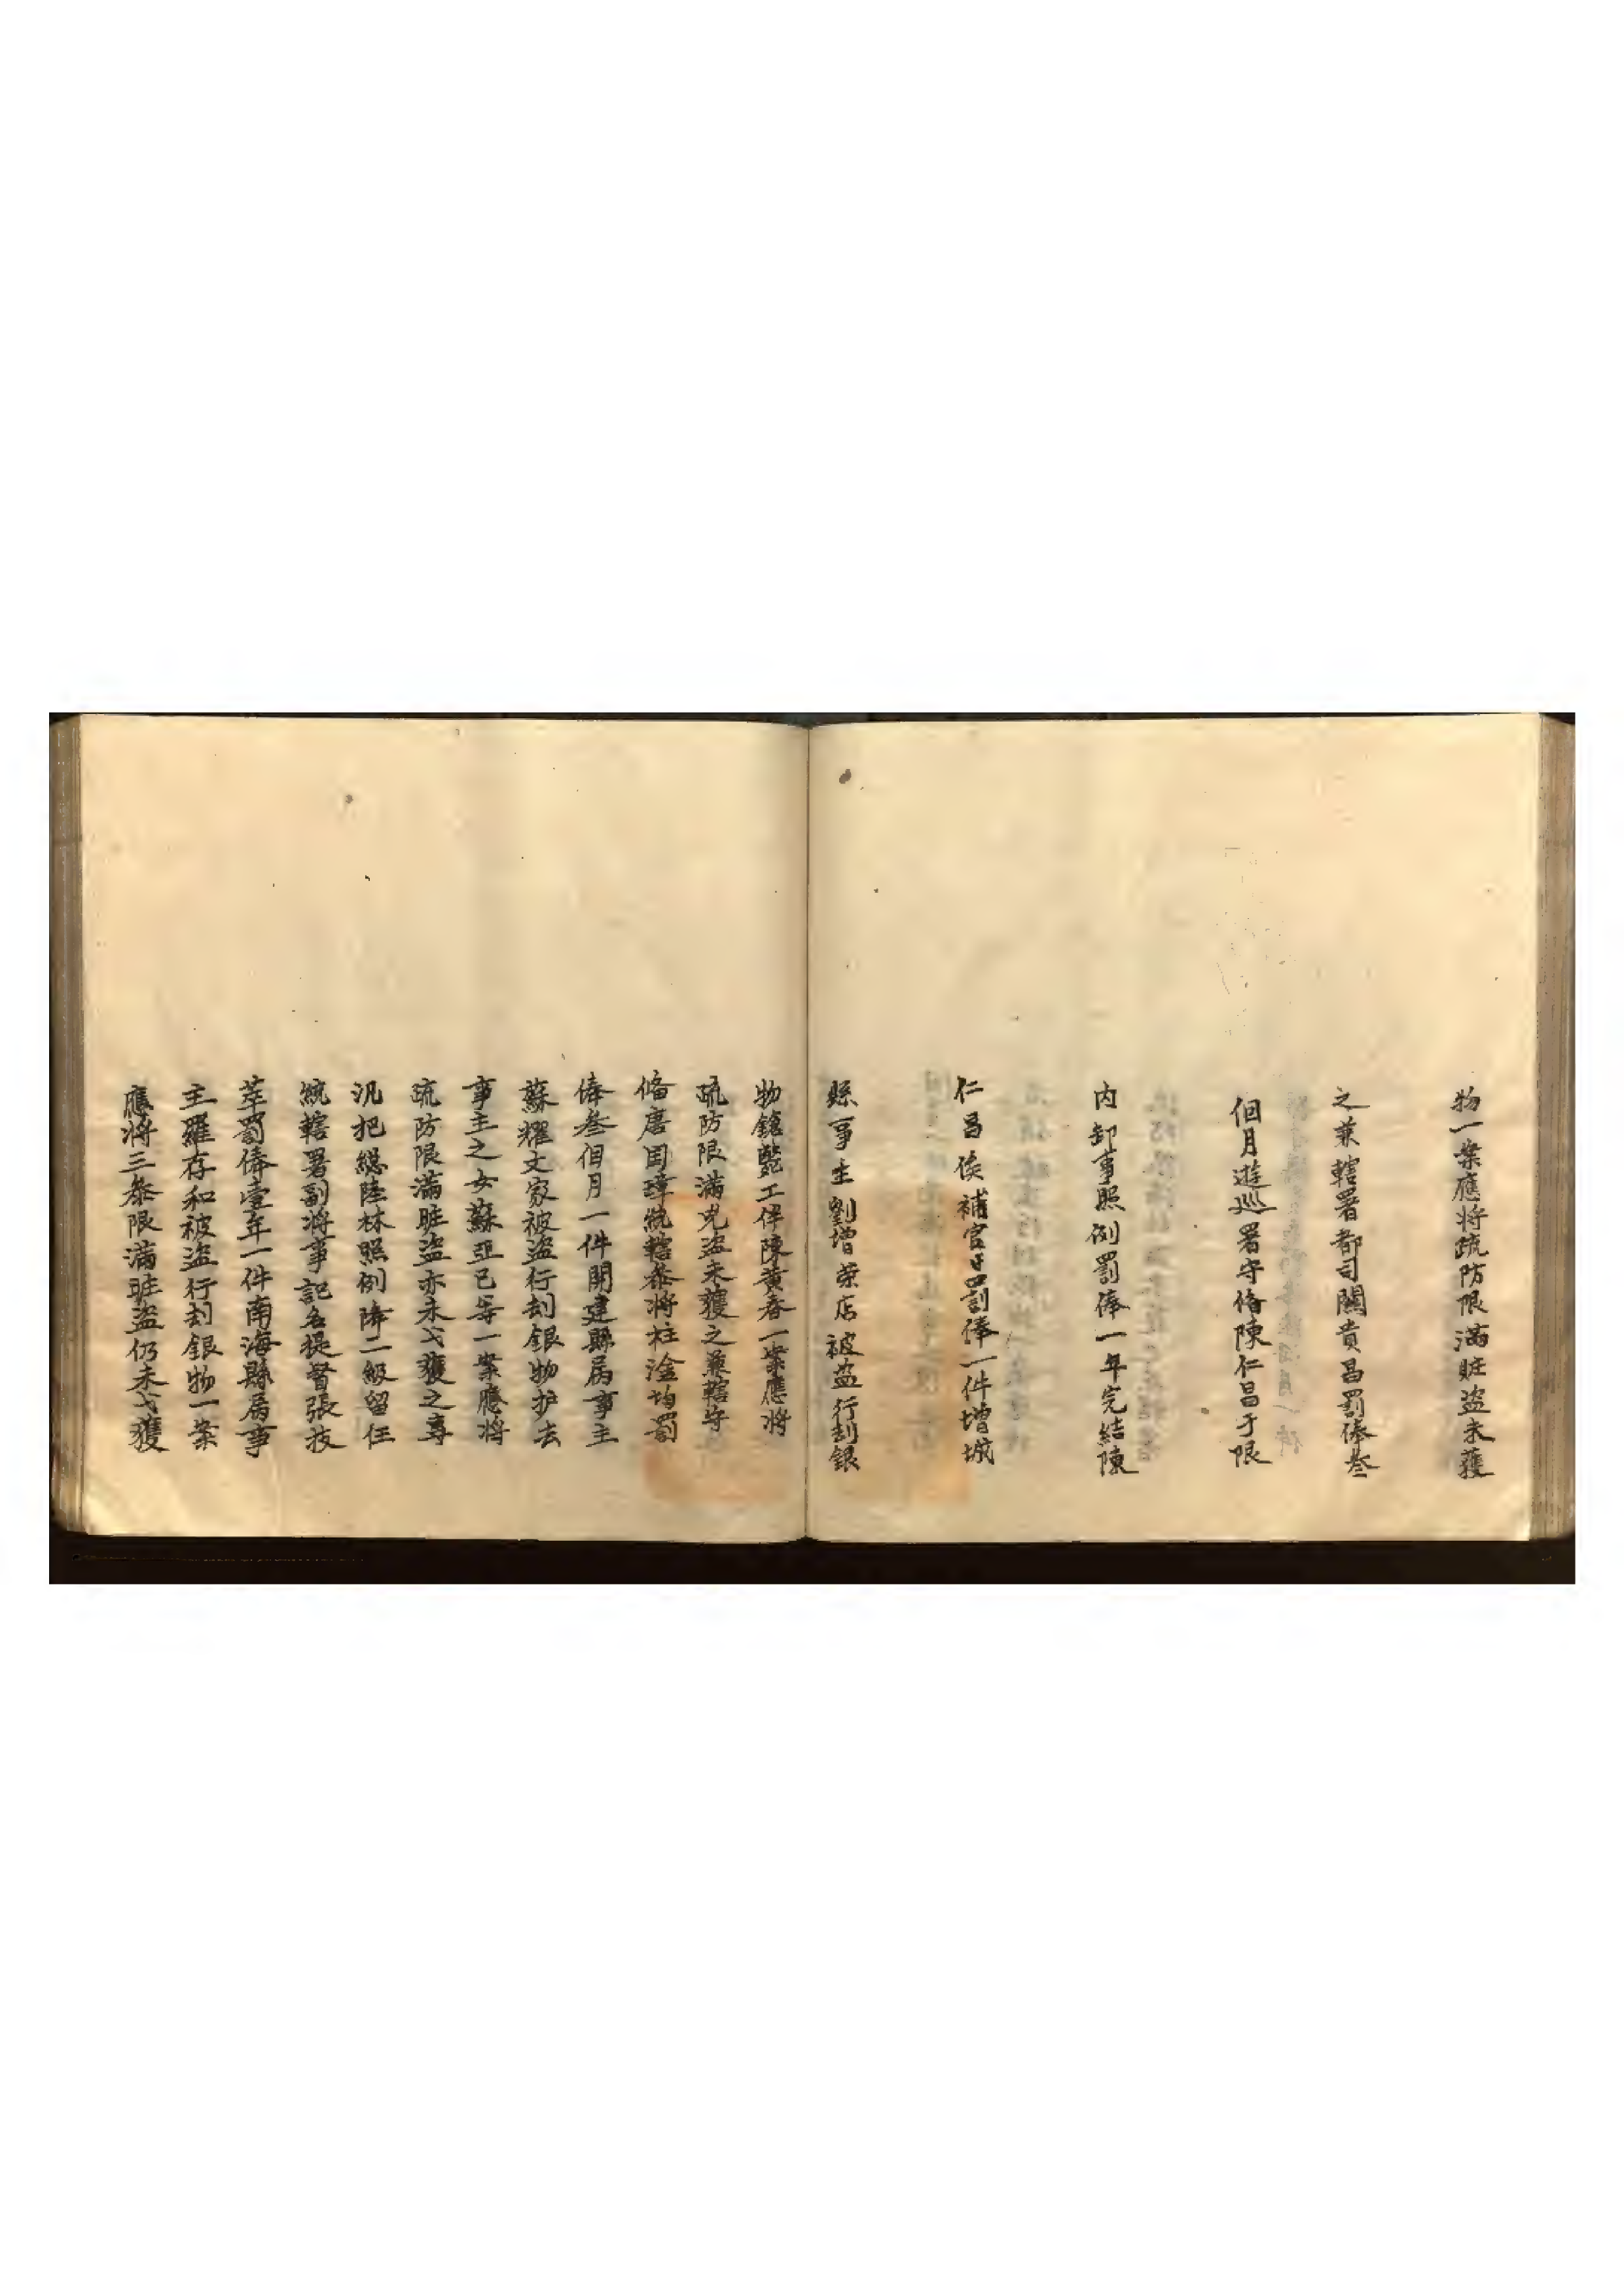 物一案應将疏防限滿賍盗未獲
之兼轄署都司關貴昌罰俸叁
佪月遊巡署守俻陳仁昌于限
内卸事照例罰俸一年完結陳
仁昌俟補官日罰俸一件增城
縣事主劉增荣店被盗行刦銀
物鎗斃工伴陳黄春一案應将
疏防限滿児盗未獲之兼轄守
俻唐国璋統轄叅将柱淦均罰
俸叁佪月一件開建縣属事主
蘇耀文家被盗行刦銀物护去
事主之女蘇亞已等一案應将
疏防限滿賍盗亦未弋獲之專
汛把総陸林照例降二級留任
統轄署副将事記名提督張技
萃罰俸壹年一件南海縣属事
主羅存和被盗行刦銀物一案
應将三叅限滿賍盗仍未弋獲